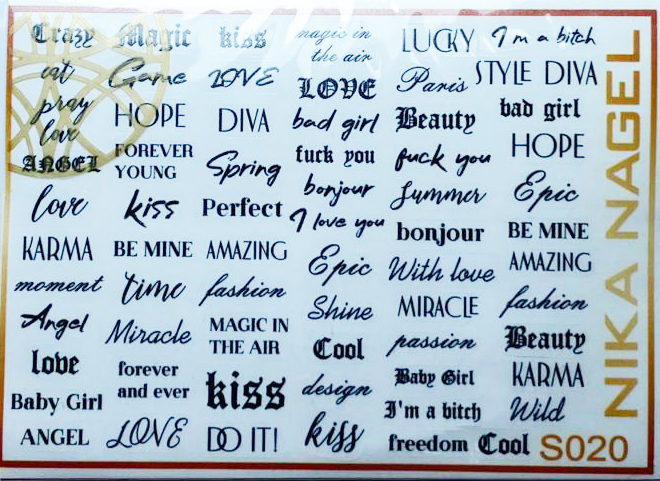 Crazy
eat
pray
love
ANGEL
love
KARMA
moment
Angel
love
Baby Girl
ANGEL
Magic
Game
HOPE
FOREVER
YOUNG
kiss
BE MINE
time
Miracle
forever
and ever
LOVE
kiss
LOVE
DIVA
Spring
Perfect
AMAZING
fashion
MAGIC IN
THE AIR
kiss
DO IT!
magic in
the air
LOVE
bad girl
fuck you
bonjour
I love you
Epic
Shine
Cool
design
kiss
LUCKY
Paris
Beauty
fuck you
Summer
bonjour
With love
MIRACLE
passion
Baby Girl
I'm a bitch
freedom
I'm a bitch
STYLE DIVA
bad girl
HOPE
Epic
BE MINE
AMAZING
fashion
Beauty
KARMA
Wild
Cool
S020
NIKA NAGEL